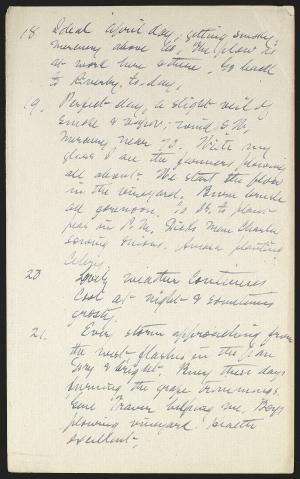 18 Ideal April day, getting smoky,
mercury above 60, The plow is
at work here & there. Go back
to Riverby, to-day.
19. Perfect day, a slight veil of
smoke & vapor; wind S.W,
mercury near 70. With my
glass I see the farmers plowing
all about. We start the plow
in the vineyard. Burn brush
all forenoon. To to plant
peas in P.M. Dick's man Charlie
sowing onions. Aurora planting
celery.
20 Lovely weather continues
Cool at night & sometimes
frosty,
21. Every storm approaching from
the west flashes in the pan
Dry & bright. Busy these days
burning the grape trimmings,
Gene Traver helping me, Boys
plowing vineyard. Health
excellent.